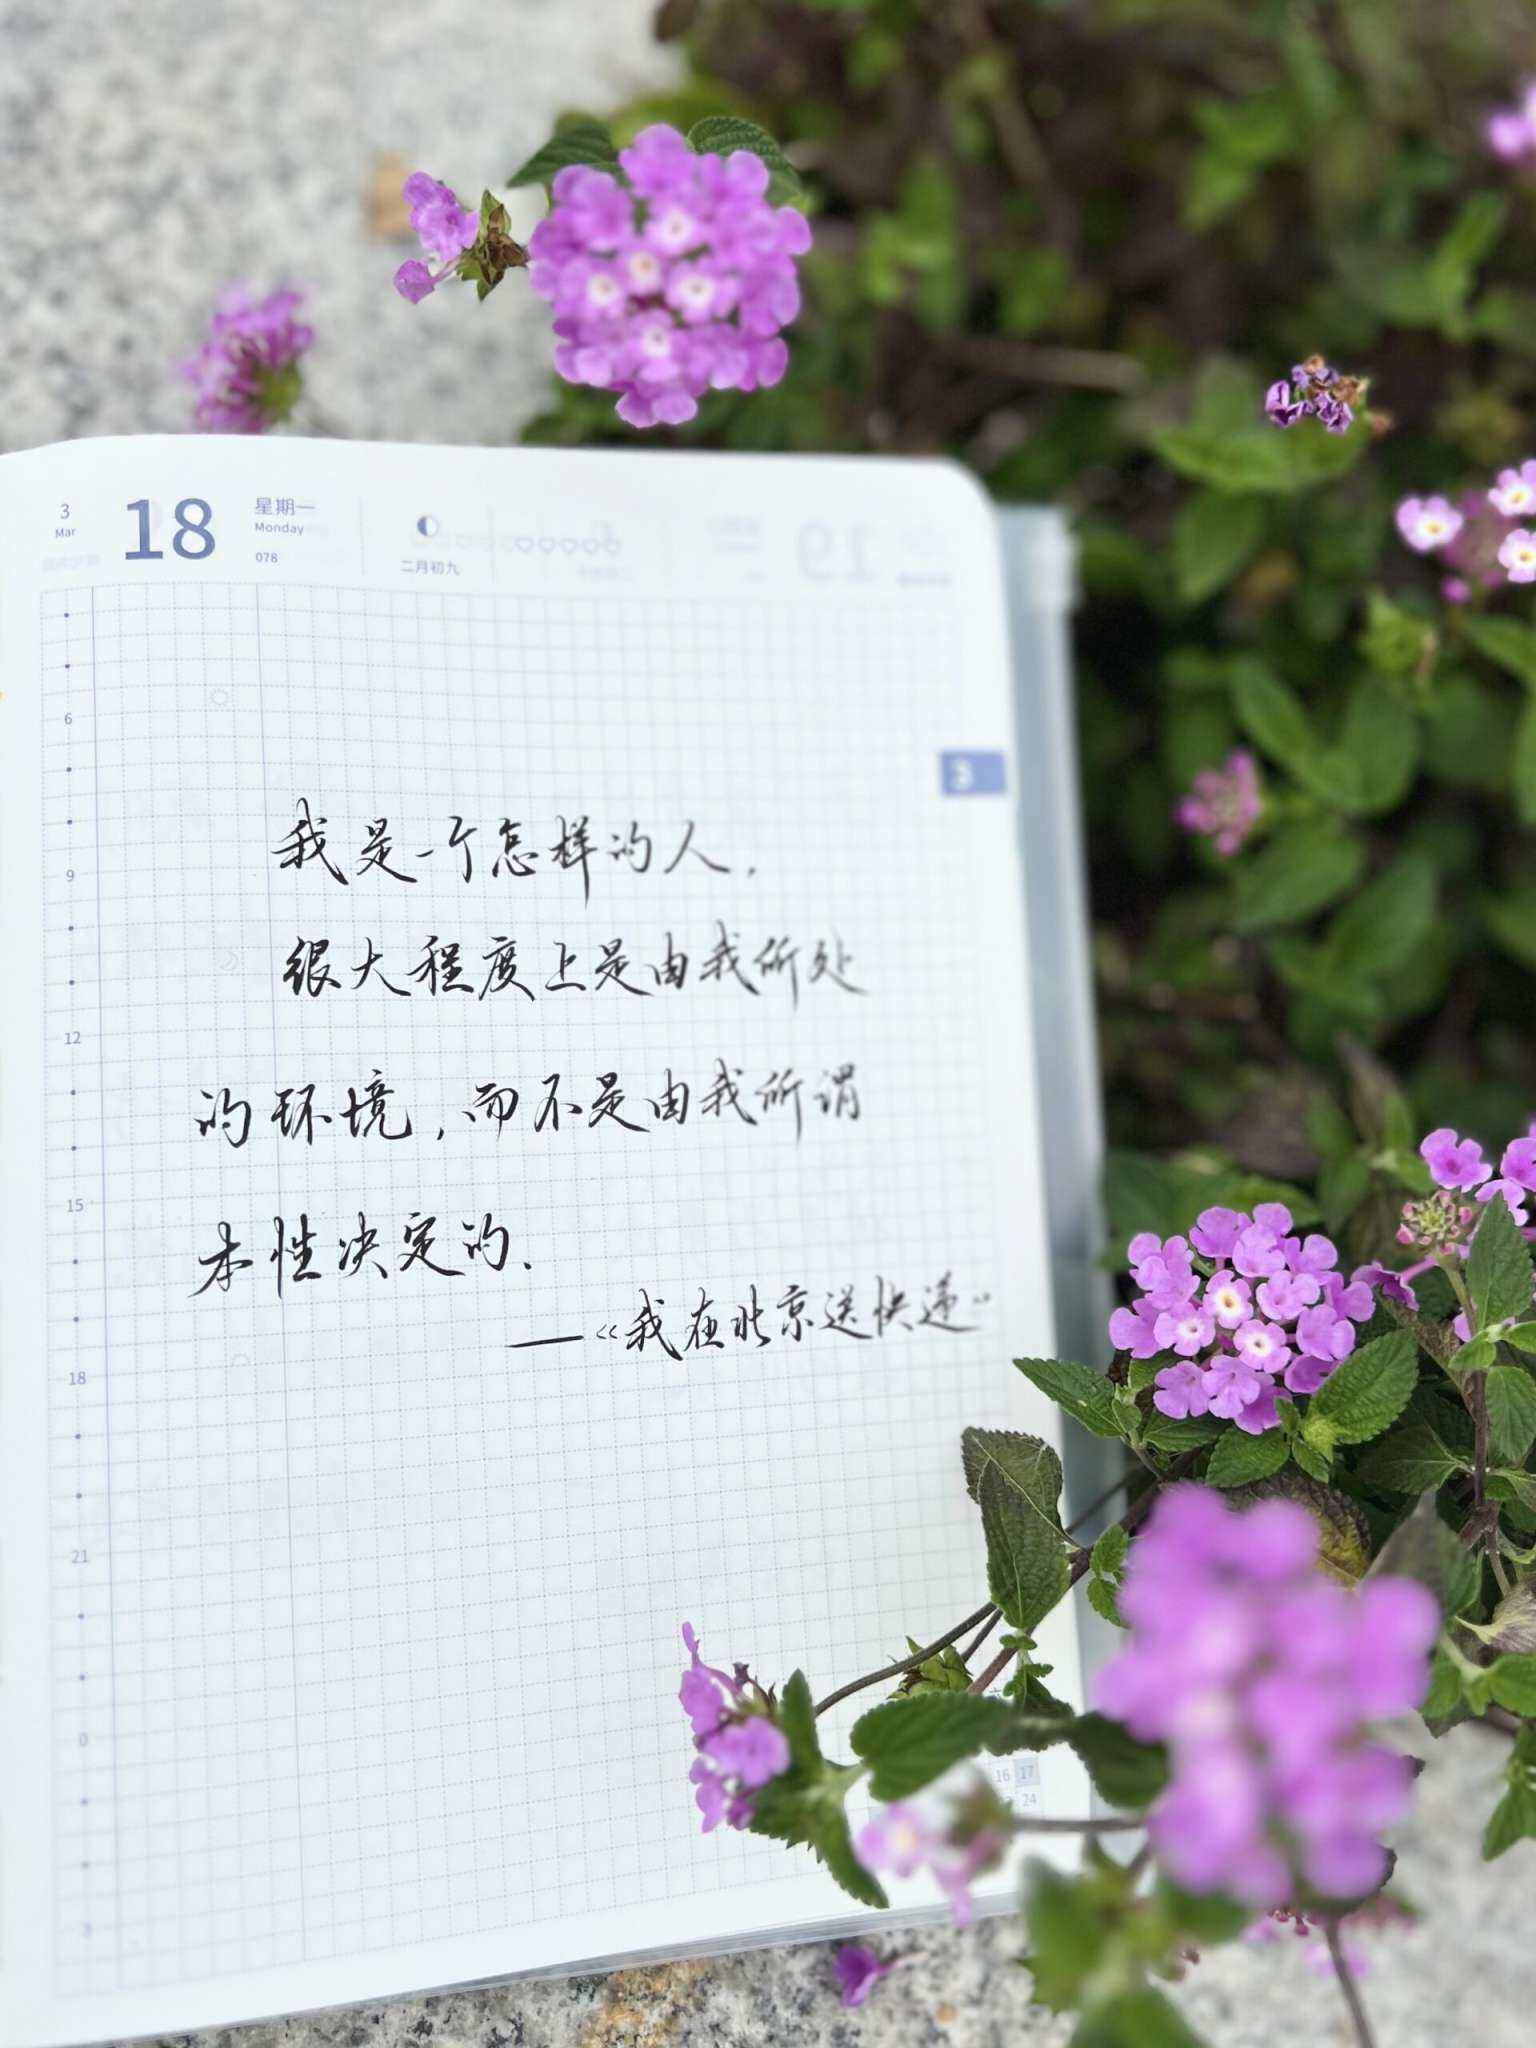 3
Mar
18
星期一
Monday
078
二月初九
3
6
9
12
15
18
21
0
3
我是一个怎样的人，
很大程度上是由我所处
的环境，而不是由我所谓
本性决定的.
——《我在北京送快递》
16 17
24